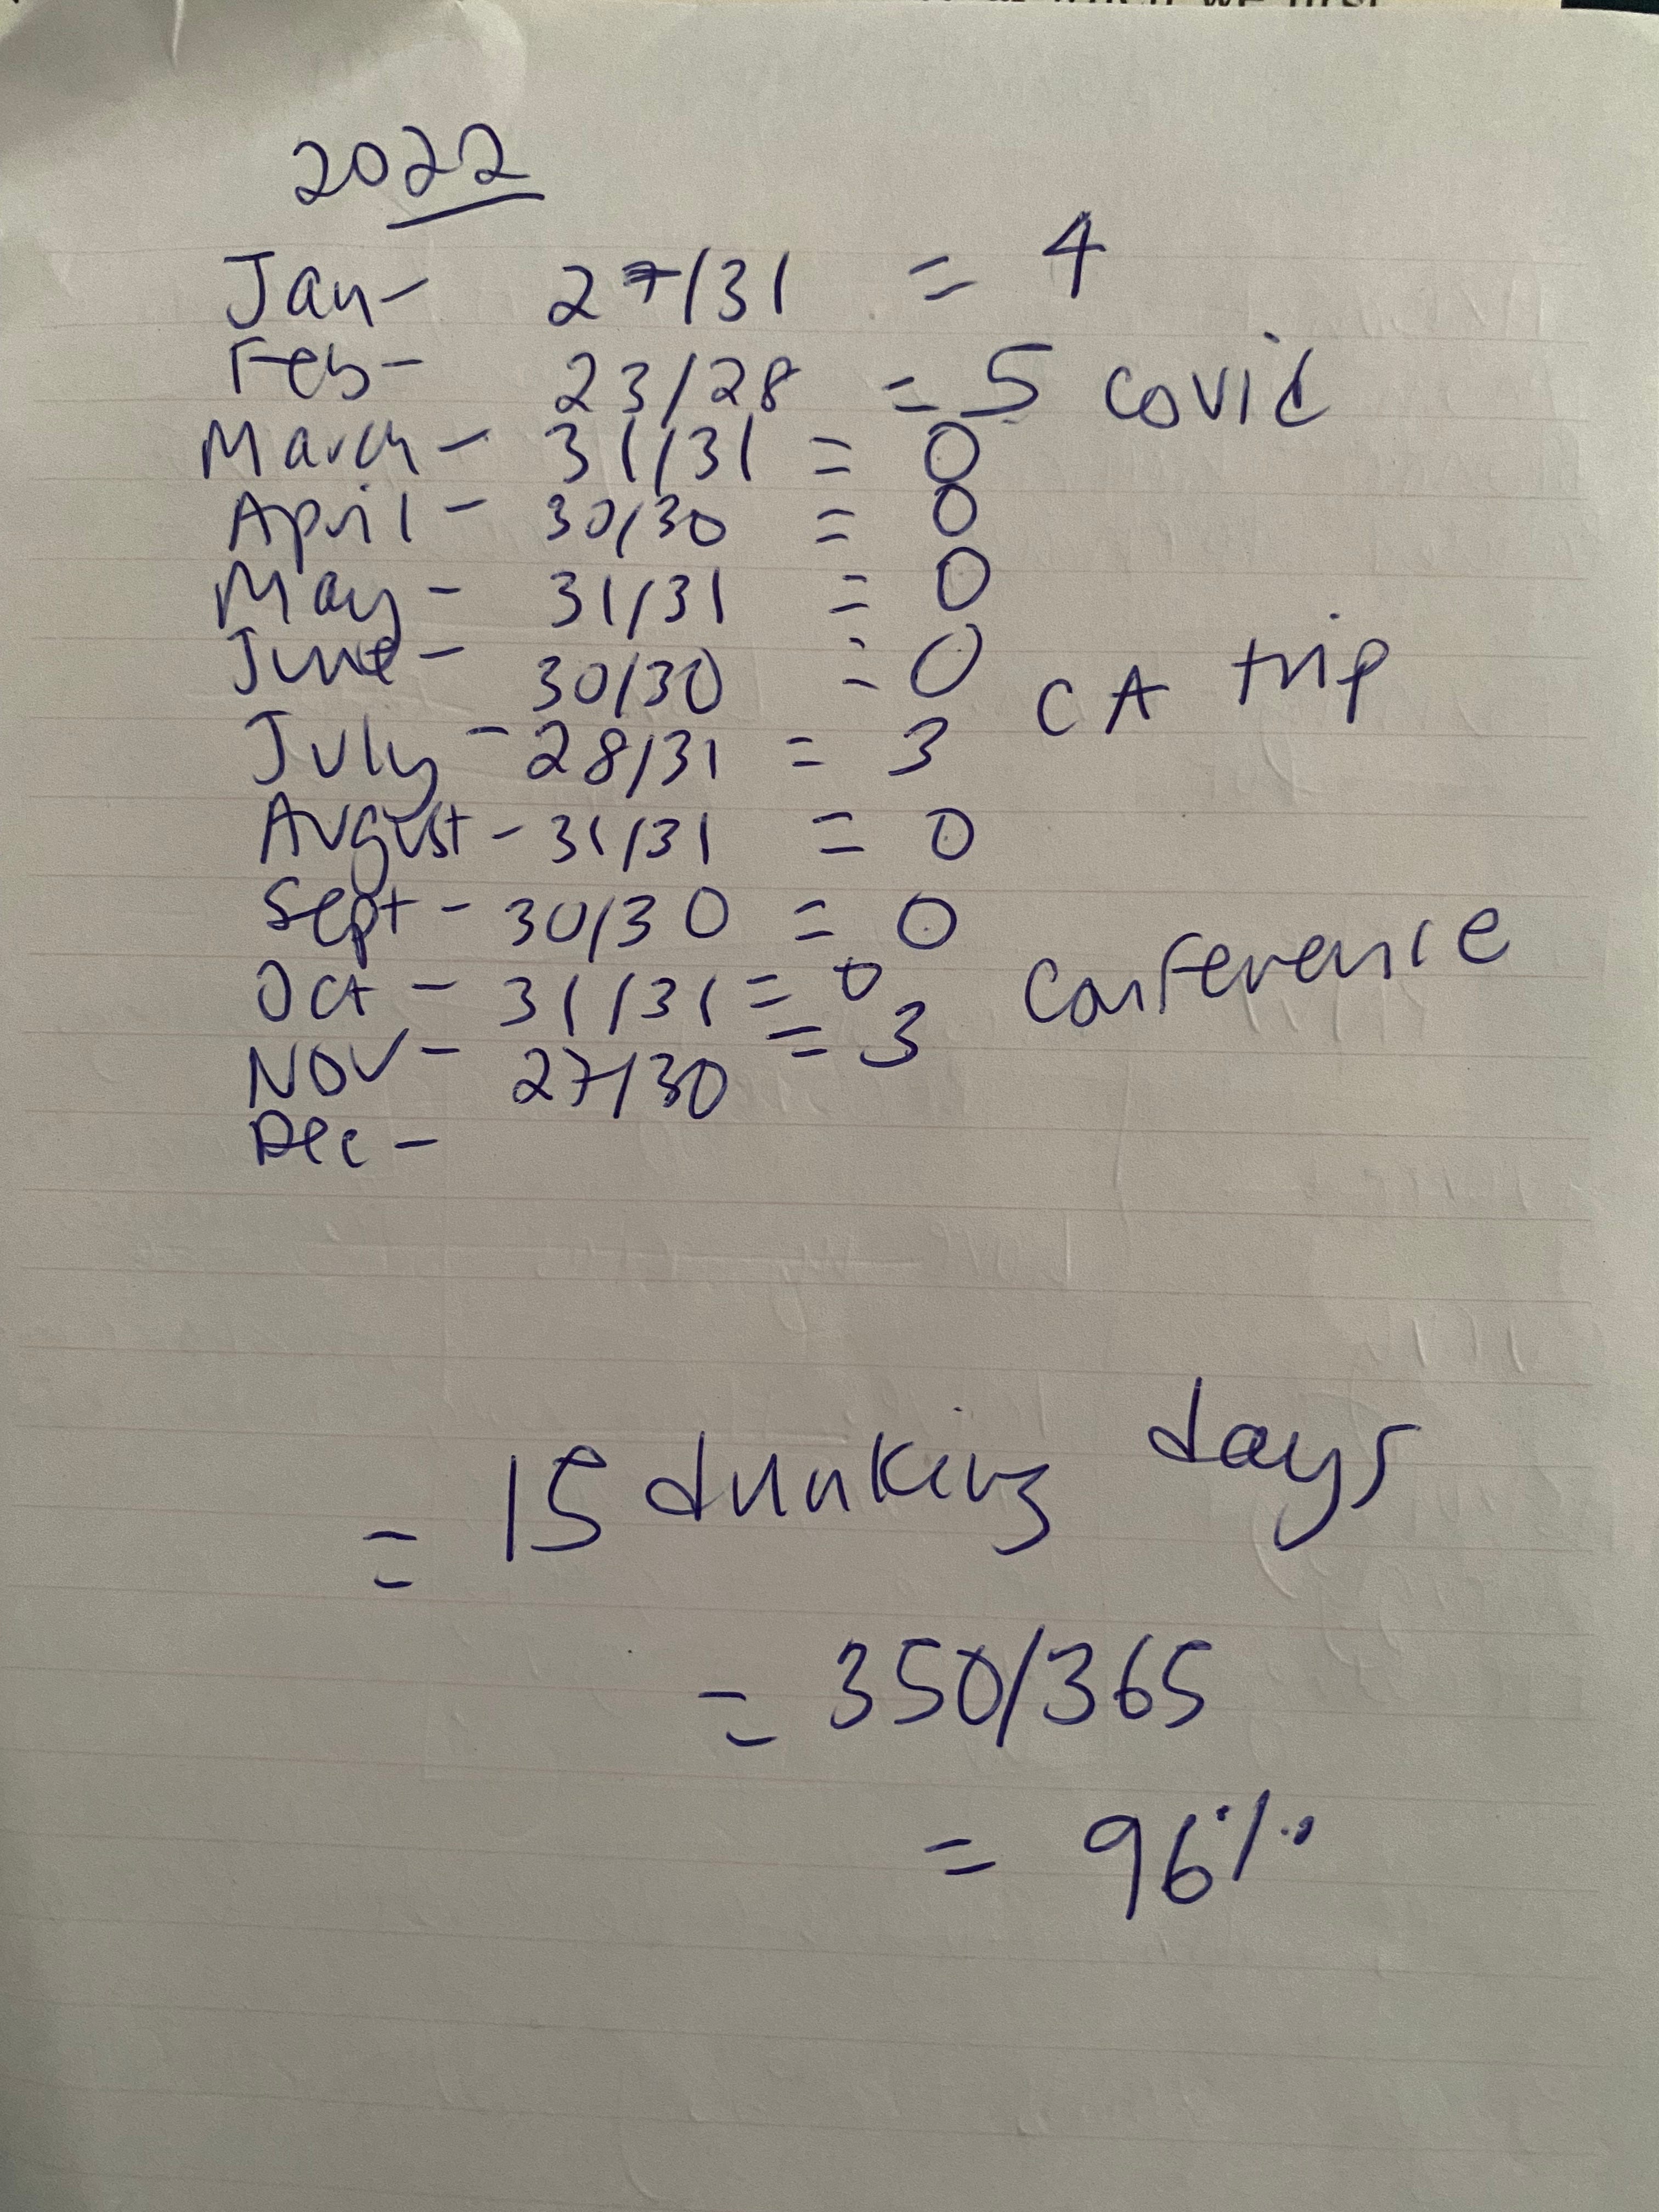 2022
Jan - 27/31 = 4
Feb - 23/28 = 5 covid
March - 31/31 = 0
April - 30/30 = 0
May - 31/31 = 0
June - 30/30 = 0 CA trip
July - 28/31 = 3
August - 31/31 = 0
Sept - 30/30 = 0
Oct - 31/31 = 0 Conference
Nov - 27/30 = 3
Dec -
= 15 drinking days
= 350/365
= 96%